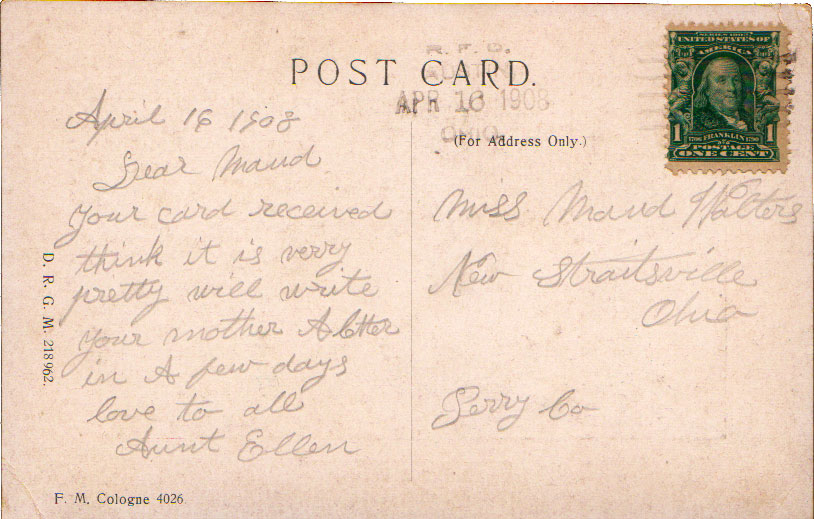 POST CARD.
R. F. D.
APR 16 1908
OHIO
(For Address Only.)
SERIES 1902
UNITED STATES OF
AMERICA
1706 FRANKLIN 1790
1 1
POSTAGE
ONE CENT
April 16 1908
Dear Maud
your card received
think it is verry
pretty will write
your mother A letter
in A few days
love to all
Aunt Ellen
Miss Maud Walters
New Straitsville
Ohio
Perry Co
D. R. G. M. 218962.
F. M. Cologne 4026